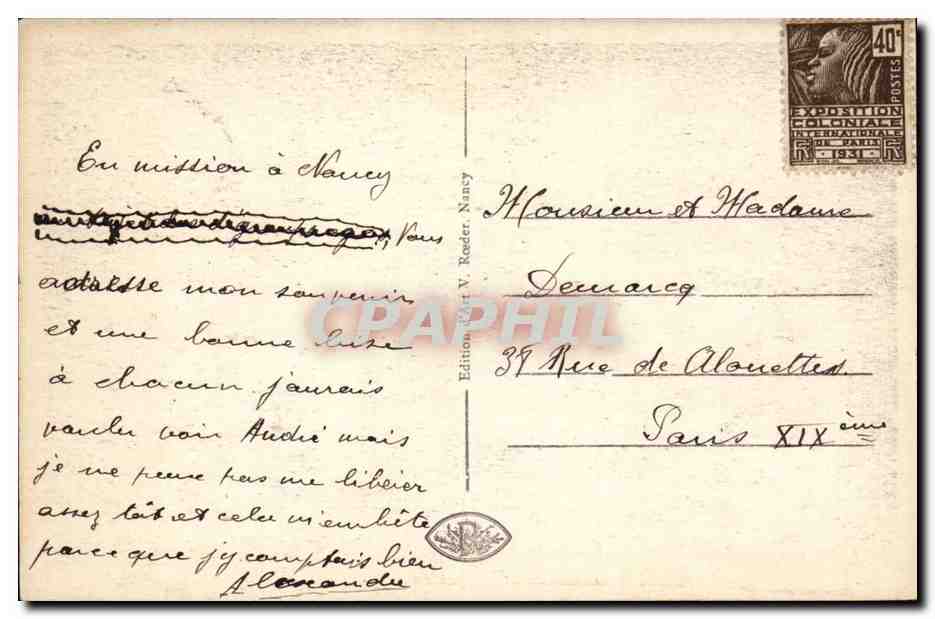 En mission à Nancy
Vous
adresse mon souvenir
et une bonne bise
à chacun j'aurais
voulu voir André mais
je ne peux pas me libérer
assez tôt et cela m'embête
parce que j'y comptais bien
Alexandre
Edition d'Art V. Rœder, Nancy
40c
POSTES
EXPOSITION
COLONIALE
INTERNATIONALE
DE PARIS
1931
Monsieur et Madame
Demarcq
39 Rue de Alouettes
Paris XIXème
CPAPHIL